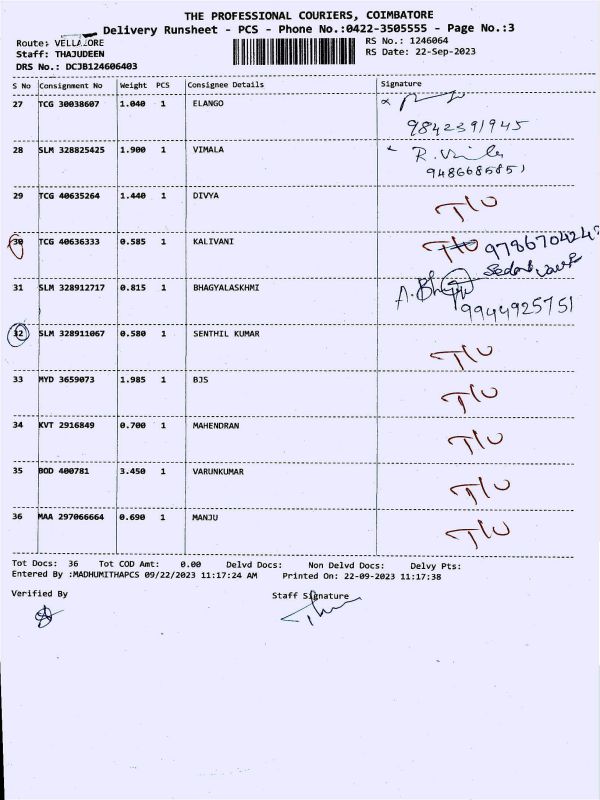 THE PROFESSIONAL COURIERS, COIMBATORE
Delivery Runsheet - PCS - Phone No.:0422-3505555 - Page No.:3
Route: VELLALORE
RS No.: 1246064
Staff: THAJUDEEN
RS Date: 22-Sep-2023
DRS No.: DCJB124606403
S No Consignment No Weight PCS Consignee Details Signature
27 TCG 30038607 1.040 1 ELANGO
9842391945
28 SLM 328825425 1.900 1 VIMALA
9486685851
29 TCG 40635264 1.440 1 DIVYA T/U
30 TCG 40636333 0.585 1 KALIVANI T/U
31 SLM 328912717 0.815 1 BHAGYALASKHMI
9944925751
32 SLM 328911067 0.580 1 SENTHIL KUMAR T/U
33 MYD 3659073 1.985 1 BJS T/U
34 KVT 2916849 0.700 1 MAHENDRAN T/U
35 BOD 400781 3.450 1 VARUNKUMAR T/U
36 MAA 297066664 0.690 1 MANJU T/U
Tot Docs: 36 Tot COD Amt: 0.00 Delvd Docs: Non Delvd Docs: Delvy Pts:
Entered By :MADHUMITHAPCS 09/22/2023 11:17:24 AM Printed On: 22-09-2023 11:17:38
Verified By Staff Signature